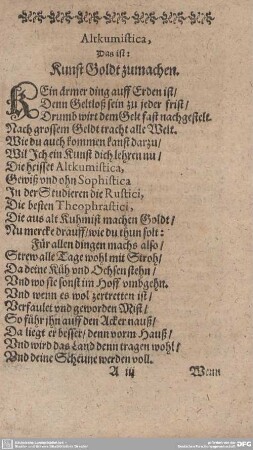 Altkumistica,
Das ist:
Kunst Goldt zumachen.
KEin ärmer ding auff Erden ist/
Denn Geltloß sein zu jeder frist/
Drumb wirt dem Gelt fast nachgestelt.
Nach grossem Geldt tracht alle Welt.
Wie du auch kommen kanst darzu/
Wil Ich ein Kunst dich lehren nu/
Die heisset Altkumistica,
Gewiß vnd ohn Sophistica
In der Studieren die Rustici,
Die besten Theophrastici,
Die aus alt Kuhmist machen Goldt/
Nu mercke drauff/ wie du thun solt:
Für allen dingen machs also/
Strew alle Tage wohl mit Stroh/
Da deine Küh vnd Ochsen stehn/
Vnd wo sie sonst im Hoff vmbgehn.
Vnd wenn es wol zertretten ist/
Verfaulet vnd geworden Mist/
So führ jhn auff den Acker nauß/
Da liegt er besser/ denn vorm Hauß/
Vnd wird das Land denn tragen wohl/
Vnd deine Scheune werden voll.
A iij Wenn